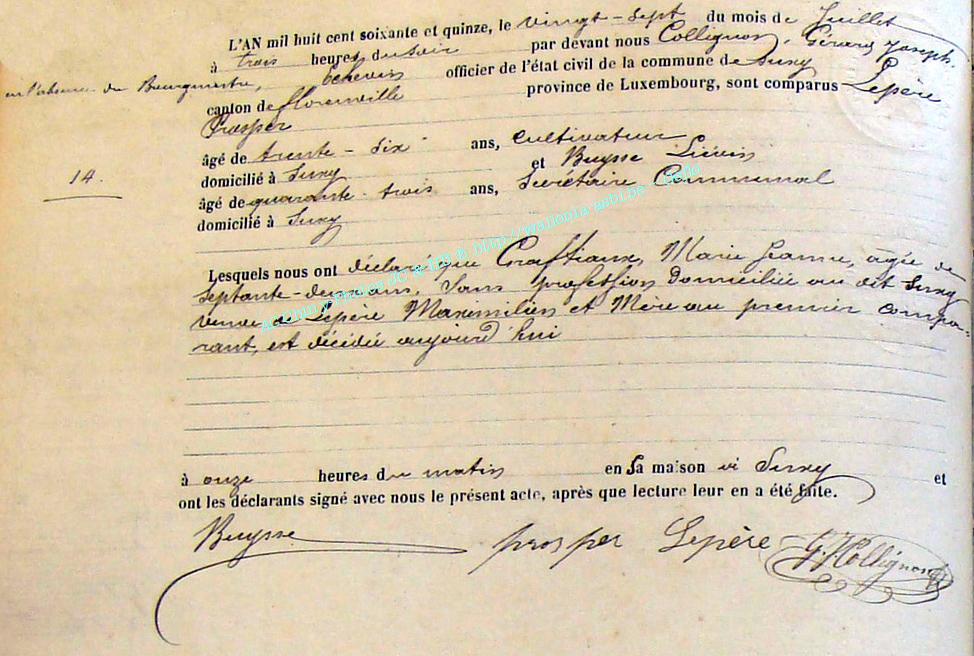 L'AN mil huit cent soixante et quinze, le vingt-sept du mois de Juillet
à trois heures du soir par devant nous Collignon, Gérard Joseph,
en l'absence du Bourgmestre, échevin officier de l'état civil de la commune de Suxy
canton de florenville province de Luxembourg, sont comparus Lepère
Prosper
âgé de trente-six ans, cultivateur
14.
domicilié à Suxy et Buysse Liévin
âgé de quarante-trois ans, Secrétaire Communal
domicilié à Suxy
Lesquels nous ont déclaré que Graftiaux, Marie Jeanne, agée de
septante-deux ans, Sans profession Domiciliée au dit Suxy
veuve de Lepère Maximilien et Mère au premier compa-
rant, est décédée aujourd'hui
à onze heures du matin en sa maison à Suxy et
ont les déclarants signé avec nous le présent acte, après que lecture leur en a été faite.
Buysse prosper Lepère G. Collignon